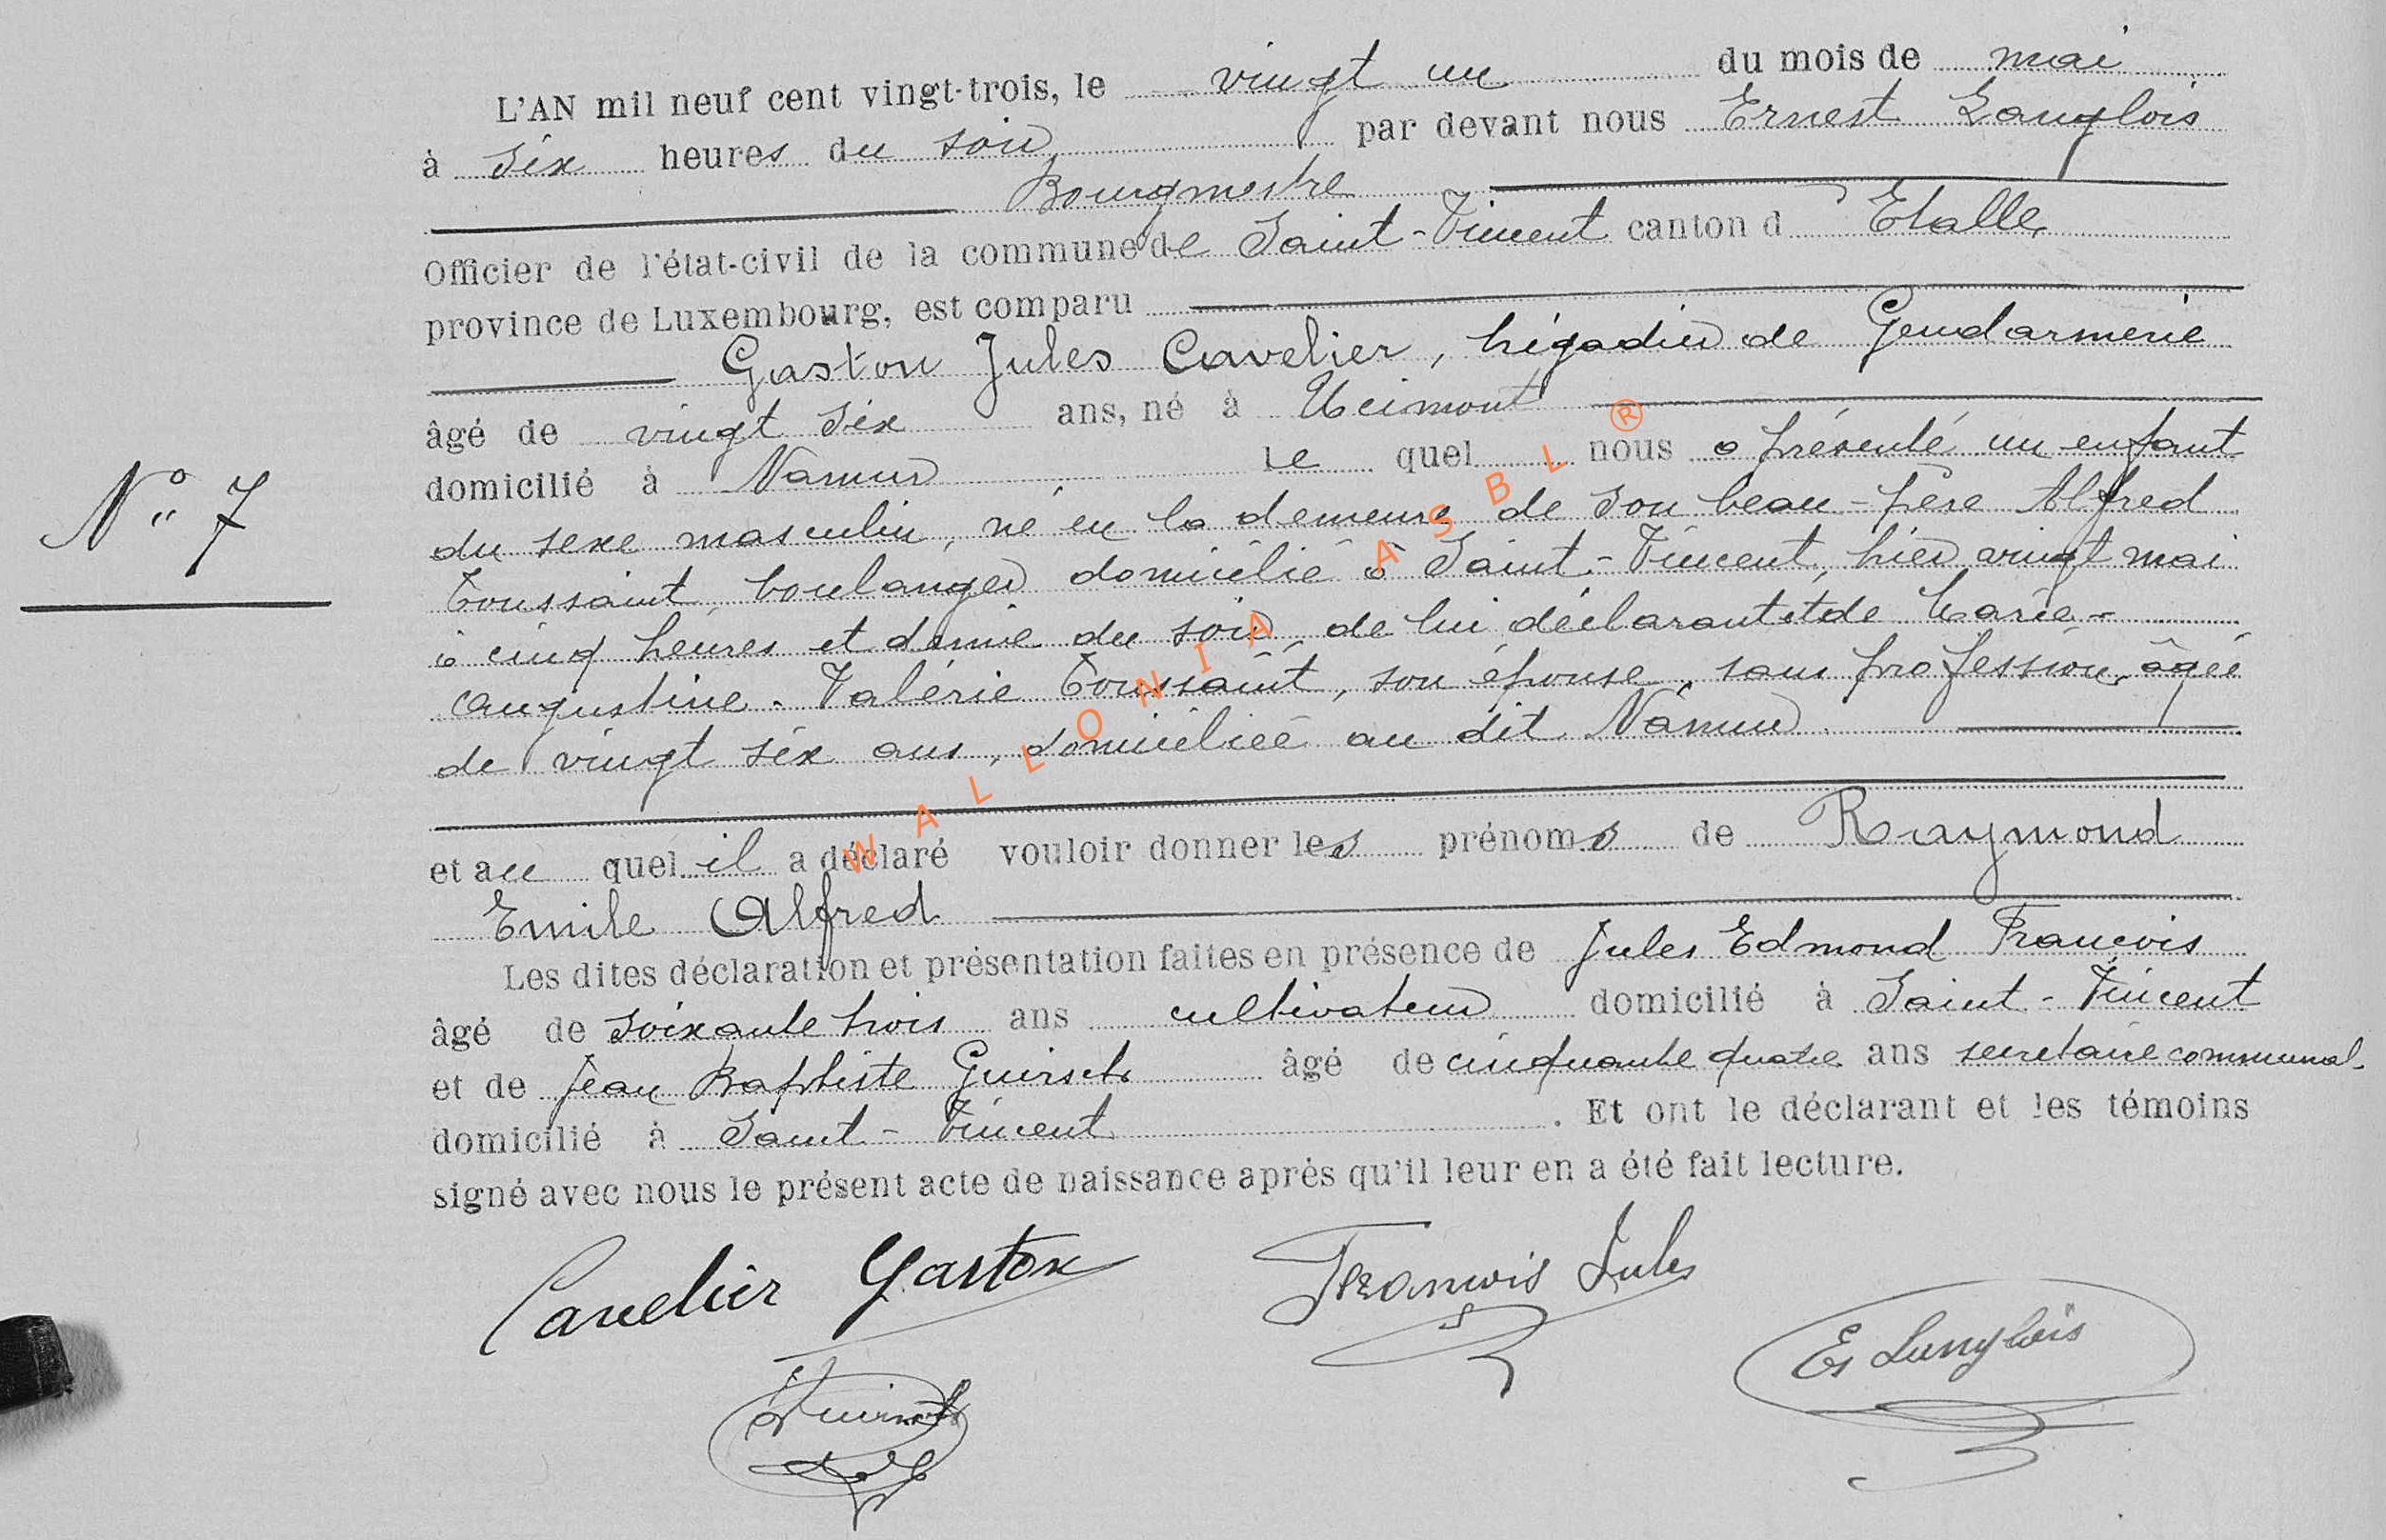 L'AN mil neuf cent vingt-trois, le vingt un du mois de mai
à six heures du soir par devant nous Ernest Langlois
Bourgmestre
Officier de l'état-civil de la commune de Saint-Vincent canton d'Etalle
province de Luxembourg, est comparu
Gaston Jules Cavelier, brigadier de Gendarmerie
âgé de vingt six ans, né à Ucimont
domicilié à Namur le quel nous a présenté un enfant
N° 7
du sexe masculin, né en la demeure de son beau-père Alfred
Toussaint, boulanger domicilié à Saint-Vincent, hier vingt mai
à cinq heures et demie du soir, de lui déclarant et de Marie-
Augustine-Valérie Toussaint, son épouse, sans profession, âgée
de vingt six ans, domiciliée au dit Namur
et au quel il a déclaré vouloir donner les prénoms de Raymond
Emile Alfred
Les dites déclaration et présentation faites en présence de Jules Edmond François
âgé de soixante trois ans cultivateur domicilié à Saint-Vincent
et de Jean Baptiste Guirsch âgé de cinquante quatre ans secrétaire communal
domicilié à Saint-Vincent. Et ont le déclarant et les témoins
signé avec nous le présent acte de naissance après qu'il leur en a été fait lecture.
Cavelier Gaston François Jules
Es Langlois
WALLONIA ASBL ®